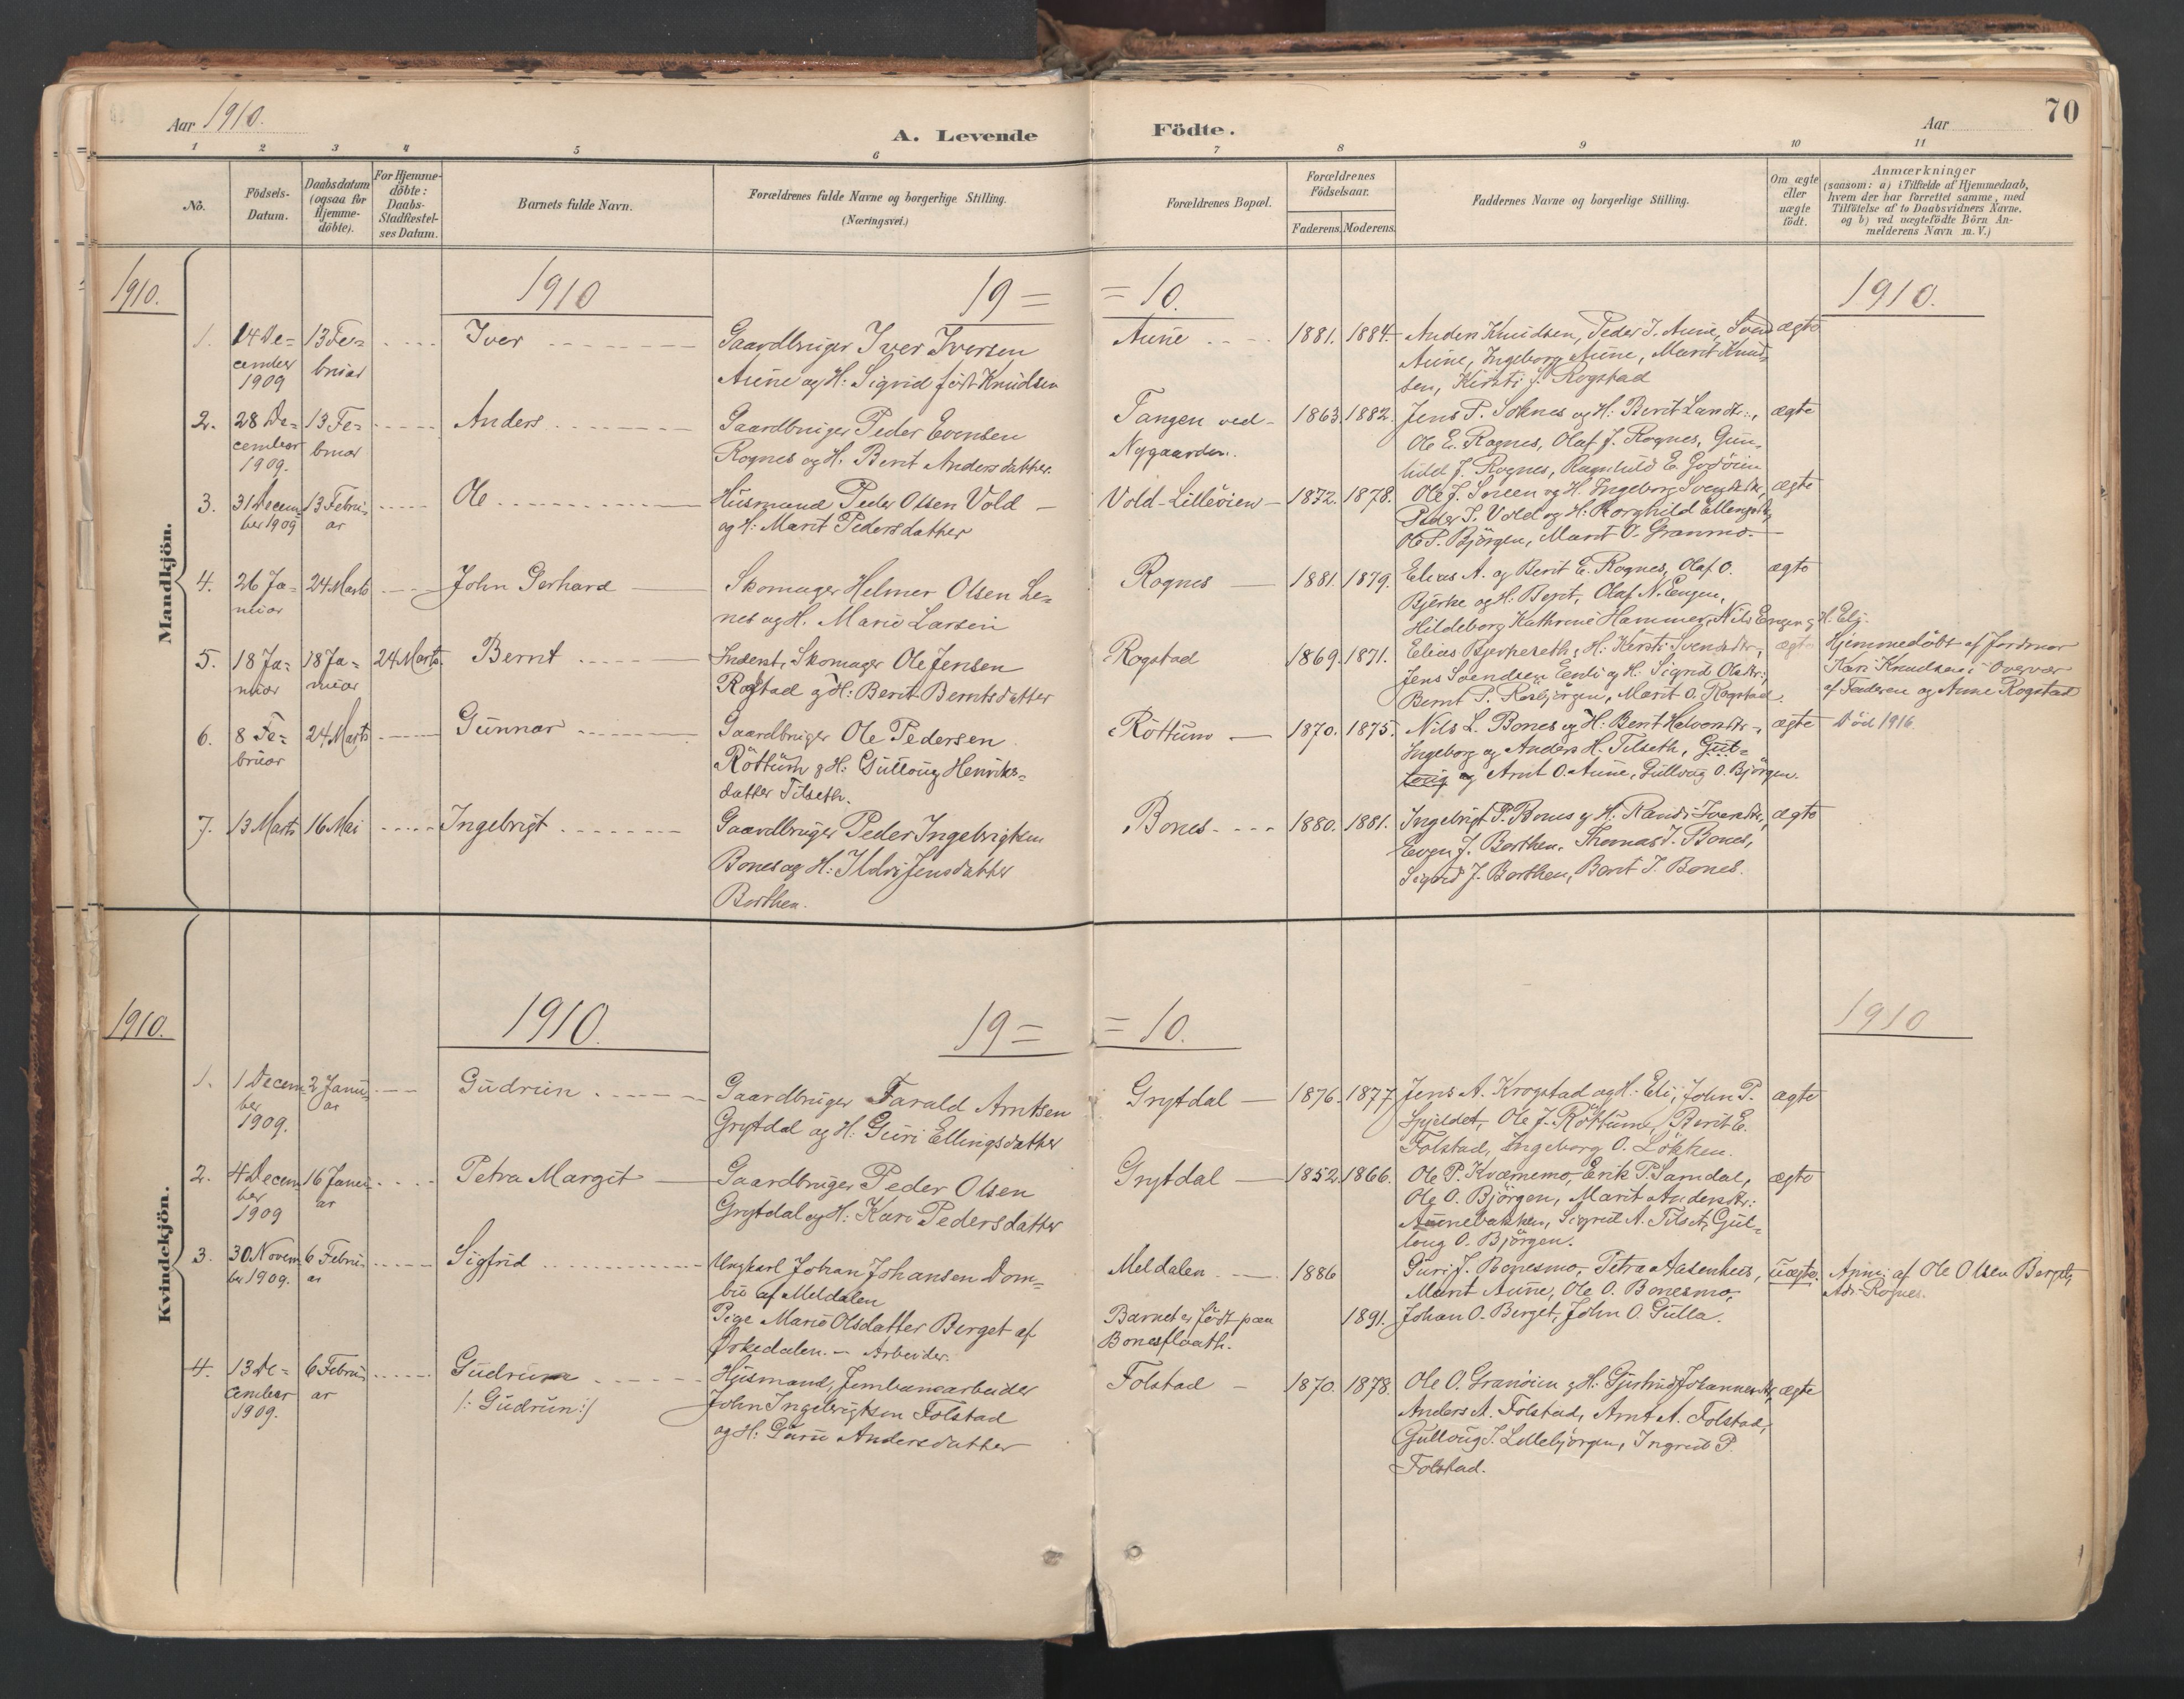 70
Aar 1910.
A. Levende Födte.
Aar
1 2 3 4 5 6 7 8 9 10 11
No.
Födsels-
Datum.
Daabsdatum
(ogsaa for
Hjemme-
döbte).
For Hjemme-
döbte:
Daabs-
Stadfæstel-
ses Datum.
Barnets fulde Navn.
Forældrenes fulde Navne og borgerlige Stilling.
(Næringsvei.)
Forældrenes Bopæl.
Forældrenes
Födselsaar.
Faderens. Moderens.
Faddernes Navne og borgerlige Stilling.
Om ægte
eller
uægte
födt.
Anmærkninger
(saasom: a) i Tilfælde af Hjemmedaab,
hvem der har forrettet samme, med
Tilföielse af to Daabsvidners Navne,
og b) ved uægtefödte Börn An-
melderens Navn m. V.)
Mandkjön.
1910. 1910 19= =10. 1910.
1.
14 De-
cember
1909
13 Fe-
bruar
Iver
Gaardbruger Iver Iversen
Aune og H: Sigrid födt Knudsen
Aune
1881. 1884.
Anders Knudsen, Peder J. Aune, Svend
Aune, Ingeborg Aune, Marit Knud-
sen, Kirsti J. Rogstad
ægte
2.
28 De-
cember
1909.
13 Fe-
bruar
Anders
Gaardbruger Peder Evensen
Rognes og H. Berit Andersdatter.
Tangen ved
Nygaarden.
1863. 1882.
Jens P. Soknes og H: Berit Larsdtr.,
Ole E. Rognes, Olaf J. Rognes, Gun-
hild J. Rognes, Ragnhild E. Godöien
ægte
3.
31 Decem-
ber 1909
13 Febru-
ar
Ole
Husmand Peder Olsen Vold
og H: Marit Pedersdatter
Vold-Lilleöien
1872. 1878.
Ole J. Soreen og H. Ingeborg Svendsdtr,
Peder J. Vold og H: Borghild Ellengsdtr,
Ole P. Björgen, Marit O. Granmo.
ægte
4.
26 Ja-
nuar
24 Marts
John Gerhard
Skomager Helmer Olsen Le-
nes og H. Marie Larsen
Rognes
1881. 1879.
Elias A. og Berit E. Rognes, Olaf O.
Bjerke og H: Berit, Olaf N. Engen,
Hildeborg Kathrine Hammer, Nils Engen og H. Eli.
ægte
5.
18 Ja-
nuar
18 Ja-
nuar
24 Marts
Bernt
Inderst, Skomager Ole Jensen
Rogstad og H: Berit Berntsdatter
Rogstad
1869. 1871.
Elias Bjerkeseth, H: Kirsti Svendsdtr,
Jens Svendsen Enli og H: Sigrid Olsdtr.,
Bernt P. Rosbjörgen, Marit O. Rogstad.
ægte
Hjemmedöbt af Jordmor
Kari Knudsen i Overvær
af Faderen og Anne Rogstad
6.
8 Fe-
bruar
24 Marts
Gunnar
Gaardbruger Ole Pedersen
Röttum og H: Gullaug Henriks-
datter Tilseth.
Röttum
1870. 1875.
Nils L. Bones og H: Berit Halvorsdtr,
Ingeborg og Anders H. Tilseth, Gul-
laug og Arnt O. Aune, Gullaug O. Björgen.
ægte
Död 1916.
7.
13 Marts
16 Mai
Ingebrigt
Gaardbruger Peder Ingebrigtsen
Bones og H: Ildri Jensdatter
Borthen.
Bones
1880. 1881.
Ingebrigt P. Bones og H. Randi Iversdtr,
Even J. Borthen, Thomas I. Bones,
Sigrid J. Borthen, Berit I. Bones.
ægte
Kvindekjön.
1910. 1910. 19= =10. 1910
1.
1 Decem-
ber
1909.
2 Janu-
ar
Gudrun
Gaardbruger Farald Arntsen
Grytdal og H: Guri Ellingsdatter
Grytdal
1876. 1877
Jens A. Krogstad og H: Eli, John P.
Spjeldet, Ole J. Röttum, Berit E.
Folstad, Ingeborg O. Lökken.
ægte
2.
4 Decem-
ber
1909
16 Janu-
ar
Petra Margit
Gaardbruger Peder Olsen
Grytdal og H: Kari Pedersdatter
Grytdal
1852. 1866.
Ole P. Kværnemo, Erik P. Samdal,
Ole O. Björgen, Marit Andersdtr.
Aunebakken, Sigrid A. Tilset, Gul-
laug O. Björgen.
ægte
3.
30 Novem-
ber 1909.
6 Febru-
ar
Sigfrid
Ungkarl Johan Johansen Dom-
bu af Meldalen
Pige Marie Olsdatter Berget af
Orkedalen. – Arbeider.
Meldalen
Barnet er födt paa
Bonesfloath.
1886
1891.
Guri J. Bonesmo, Petra Aasenhus,
Marit Aune, Ole O. Bonesmo,
Johan O. Berget, John O. Gulla.
uægte.
Anm. af Ole Olsen Berget,
Adr. Rognes.
4.
13 De-
cember
1909.
6 Febru-
ar
Gudrun
/: Gudrun :/
Husmand, Jernbanearbeider
John Ingebrigtsen Folstad
og H: Guru Andersdatter
Folstad
1870. 1878.
Ole O. Granöien og H: Gjertrud Johannesdtr,
Anders A. Folstad, Arnt A. Folstad,
Gullaug J. Lillebjörgen, Ingrid P.
Folstad.
ægte